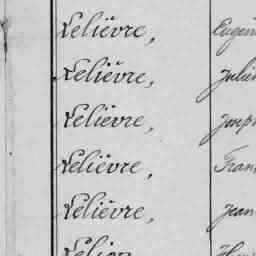 Lelièvre, Eugèn
Lelièvre, Julien
Lelièvre, Joseph
Lelièvre, Fran
Lelièvre, Jean
Lelion